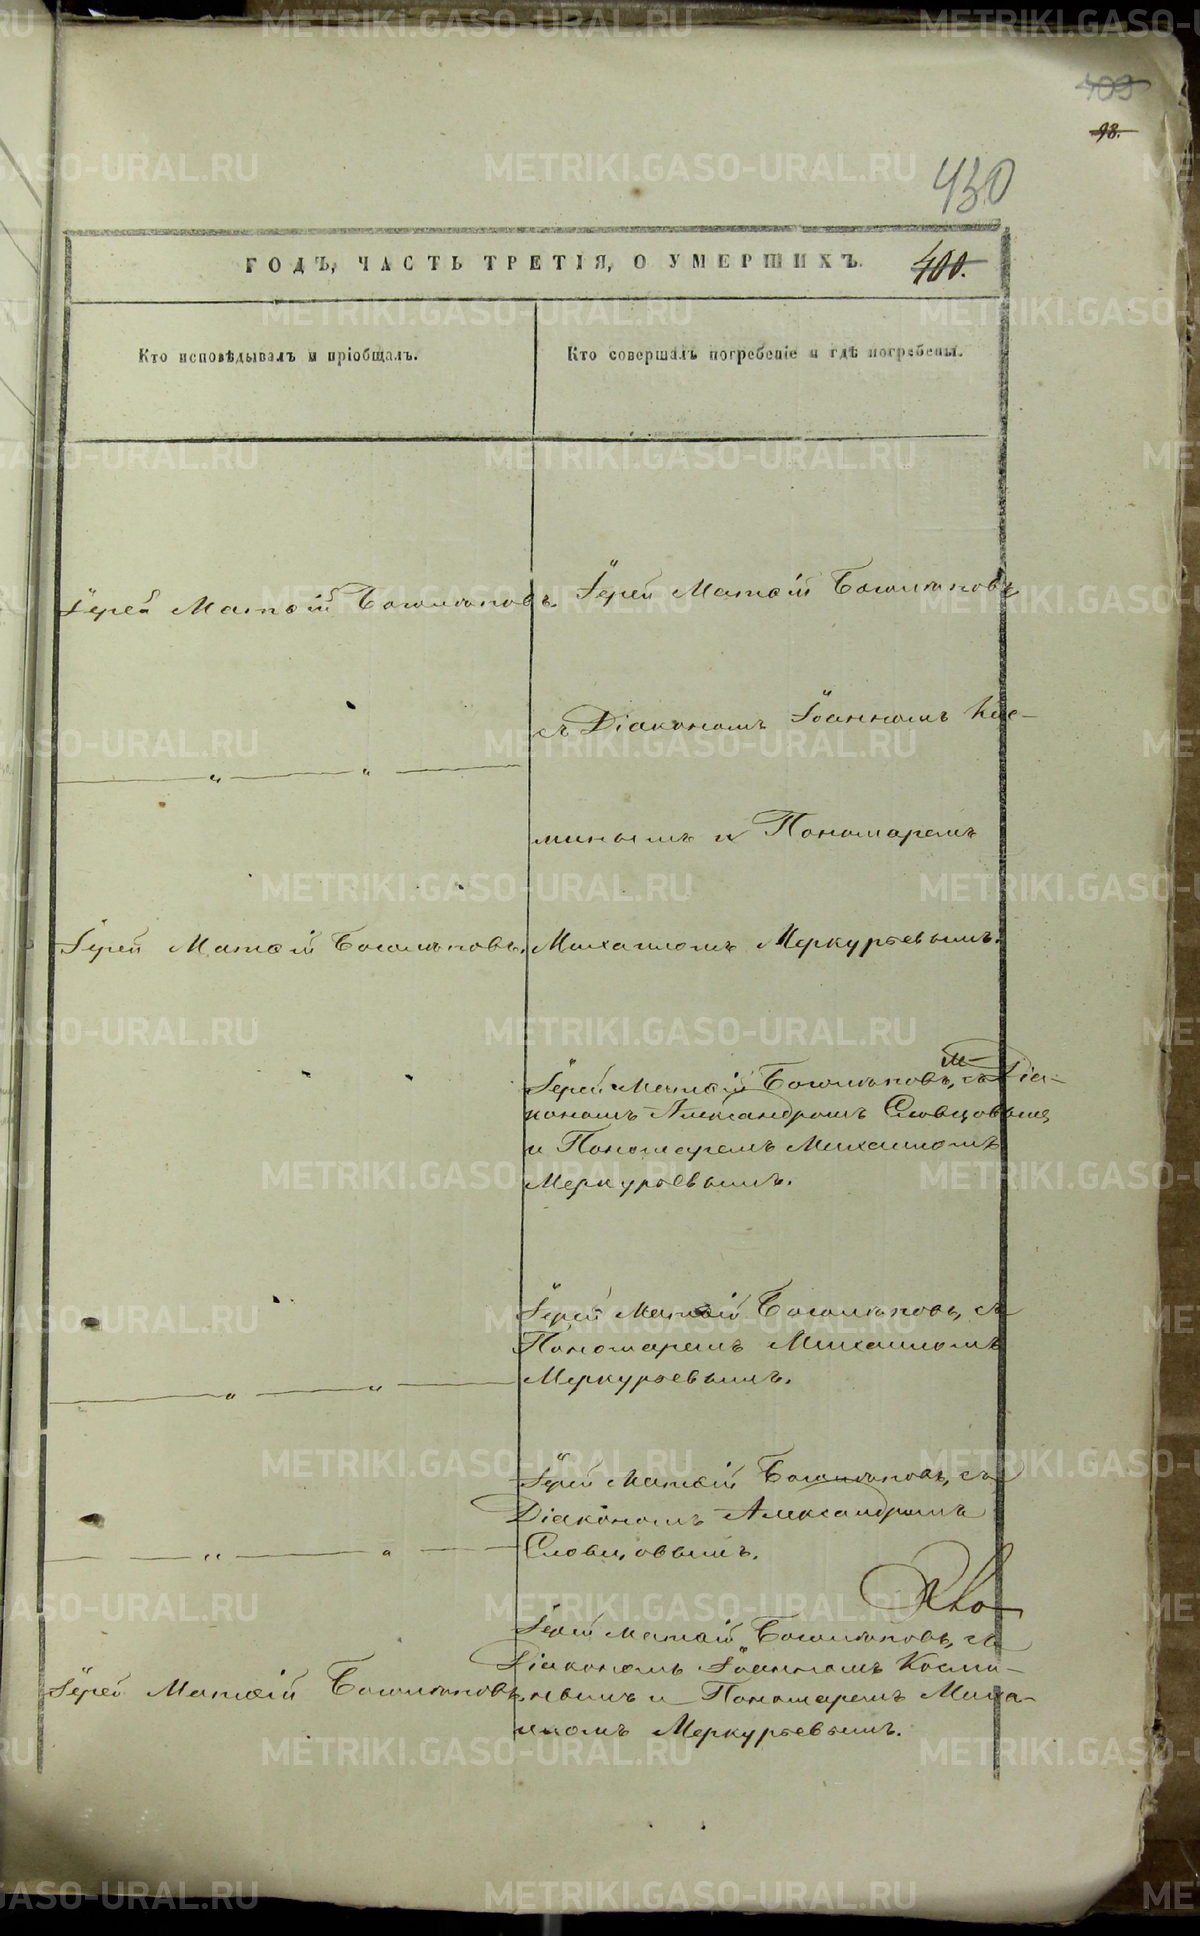 409
98.
430
ГОДЪ, ЧАСТЬ ТРЕТІЯ, О УМЕРШИХЪ.
400.
Кто исповѣдывалъ и пріобщалъ.
Кто совершалъ погребеніе и гдѣ погребены.
Іерей Матѳій Боголюбовъ.
Іерей Матѳій Боголюбовъ
съ Діакономъ Іоанномъ Кос-
— „ — „ —
минымъ и Пономаремъ
Іерей Матѳій Боголюбовъ.
Михаиломъ Меркурьевымъ.
Іерей Матѳій Боголюбовъ, съ Діа-
кономъ Александромъ Словцовымъ
и Пономаремъ Михаиломъ
Меркурьевымъ.
Іерей Матѳій Боголюбовъ, съ
Пономаремъ Михаиломъ
— „ — „ —
Меркурьевымъ.
Іерей Матѳій Боголюбовъ, съ
Діакономъ Александромъ
— „ — „ —
Словцовымъ.
Іерей Матѳій Боголюбовъ, съ
Діакономъ Іоанномъ Косми-
Іерей Матѳій Боголюбовъ.
нымъ и Пономаремъ Миха-
иломъ Меркурьевымъ.
METRIKI.GASO-URAL.RU